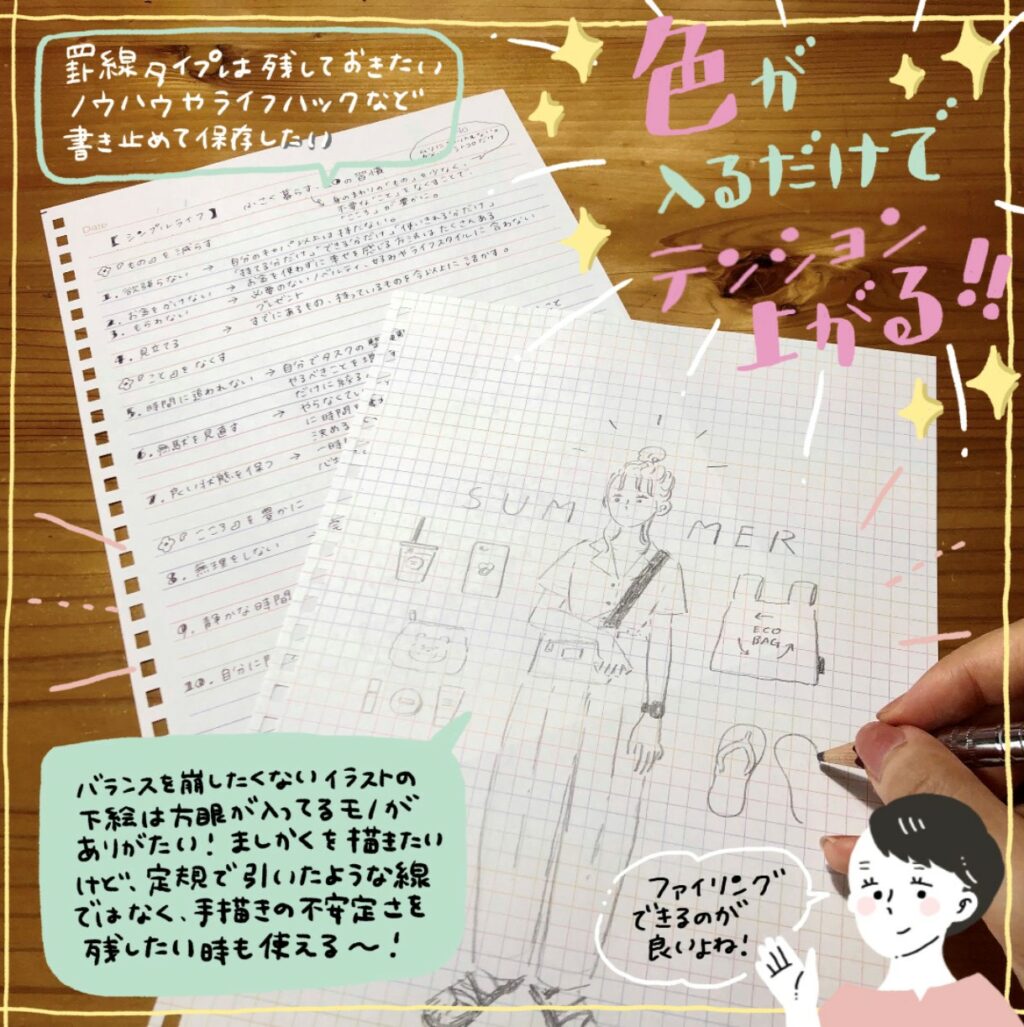 罫線タイプは残しておきたい
ノウハウやライフハックなど
書き止めて保存したい
色が
入るだけで
テンション
上がる!!
Date
【シンプルライフ】 小さく暮らす の習慣
『もの』を減らす
1. 欲張らない →
2. お金をかけない →
3. もらわない →
プレゼント
4. 見立てる → すでにあるもの、持っているものを
『こと』をなくす
5. 時間に追われない → 自分でタスクの
やるべきことを
6. 無駄を見直す → やらなくてい
に時間を
決める
7. 良い状態を保つ →
『こころ』を豊かに
8. 無理をしない
9. 静かな時間
10. 自分に
SUMMER
ECO
BAG
バランスを崩したくないイラストの
下絵は方眼が入ってるモノが
ありがたい!ましかくを描きたい
けど、定規で引いたような線
ではなく、手描きの不安定さを
残したい時も使える〜!
ファイリング
できるのが
良いよね!